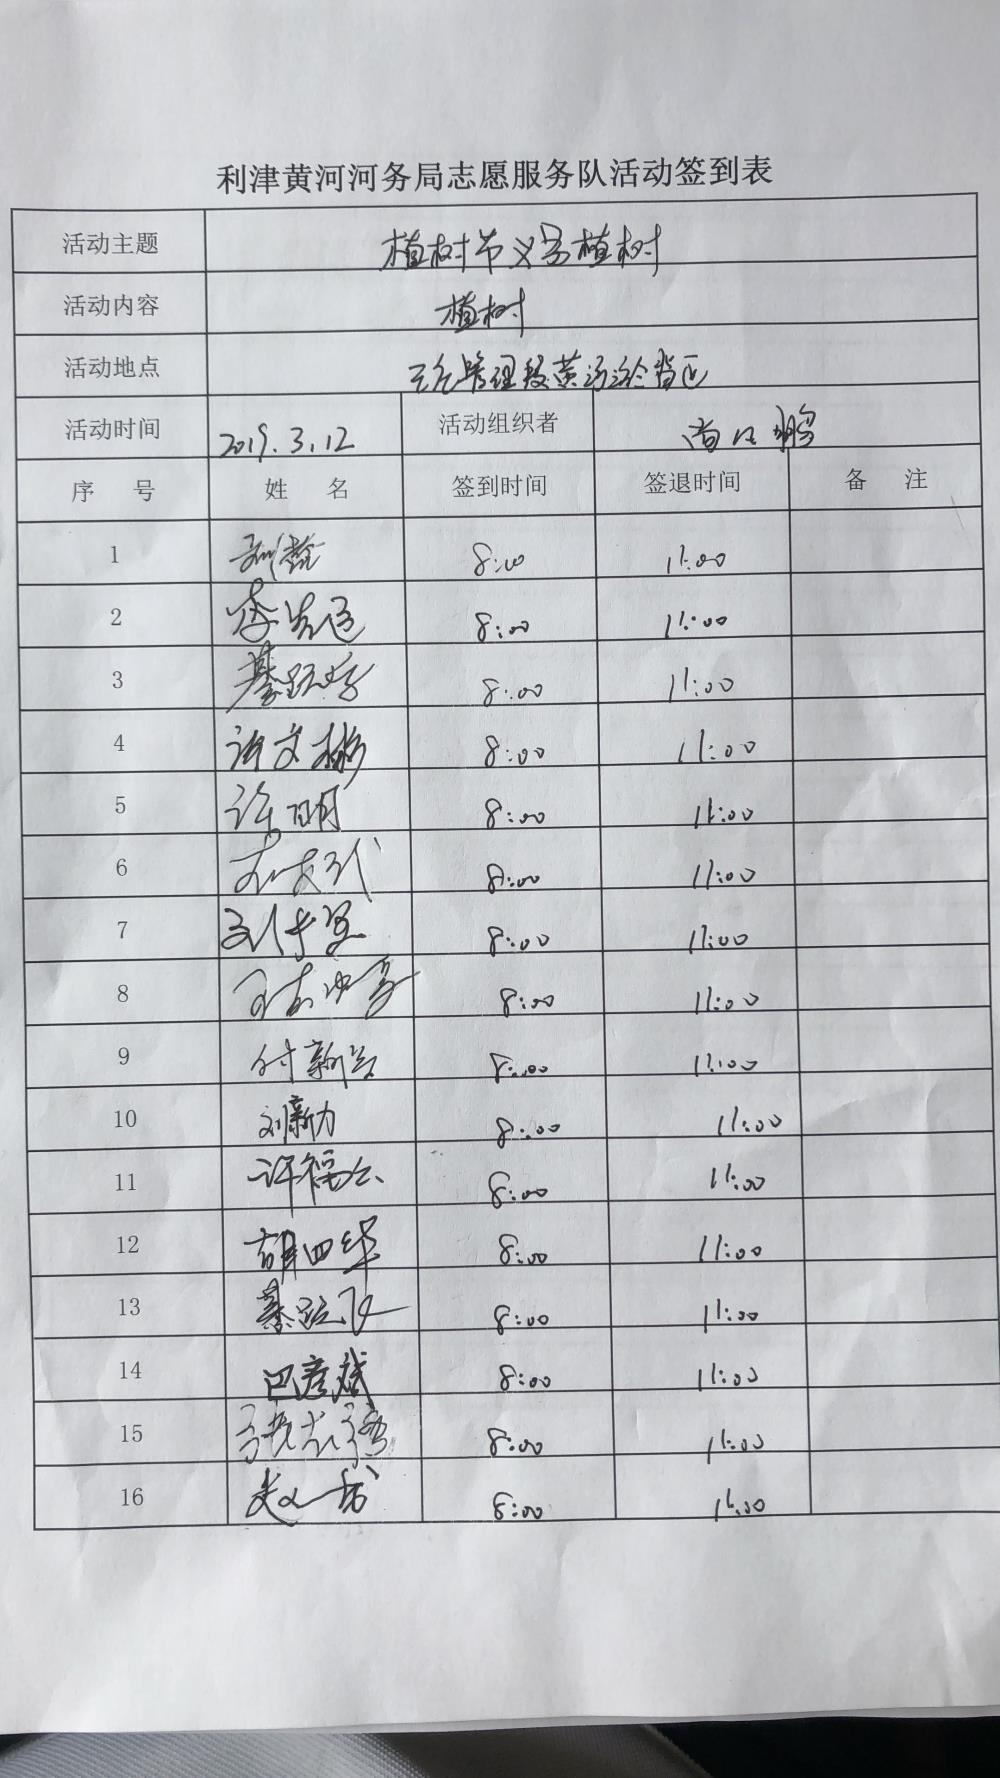 利津黄河河务局志愿服务队活动签到表
活动主题 植树节义务植树
活动内容 植树
活动地点 管理段黄河淤背区
活动时间 2019.3.12 活动组织者
序 号 姓 名 签到时间 签退时间 备 注
1 8:00 11:00
2 李 8:00 11:00
3 綦跃 8:00 11:00
4 许文彬 8:00 11:00
5 许明 8:00 11:00
6 8:00 11:00
7 刘 8:00 11:00
8 8:00 11:00
9 付新 8:00 11:00
10 刘新力 8:00 11:00
11 许福 8:00 11:00
12 胡四华 8:00 11:00
13 綦跃飞 8:00 11:00
14 巴彦斌 8:00 11:00
15 8:00 11:00
16 赵 8:00 11:00